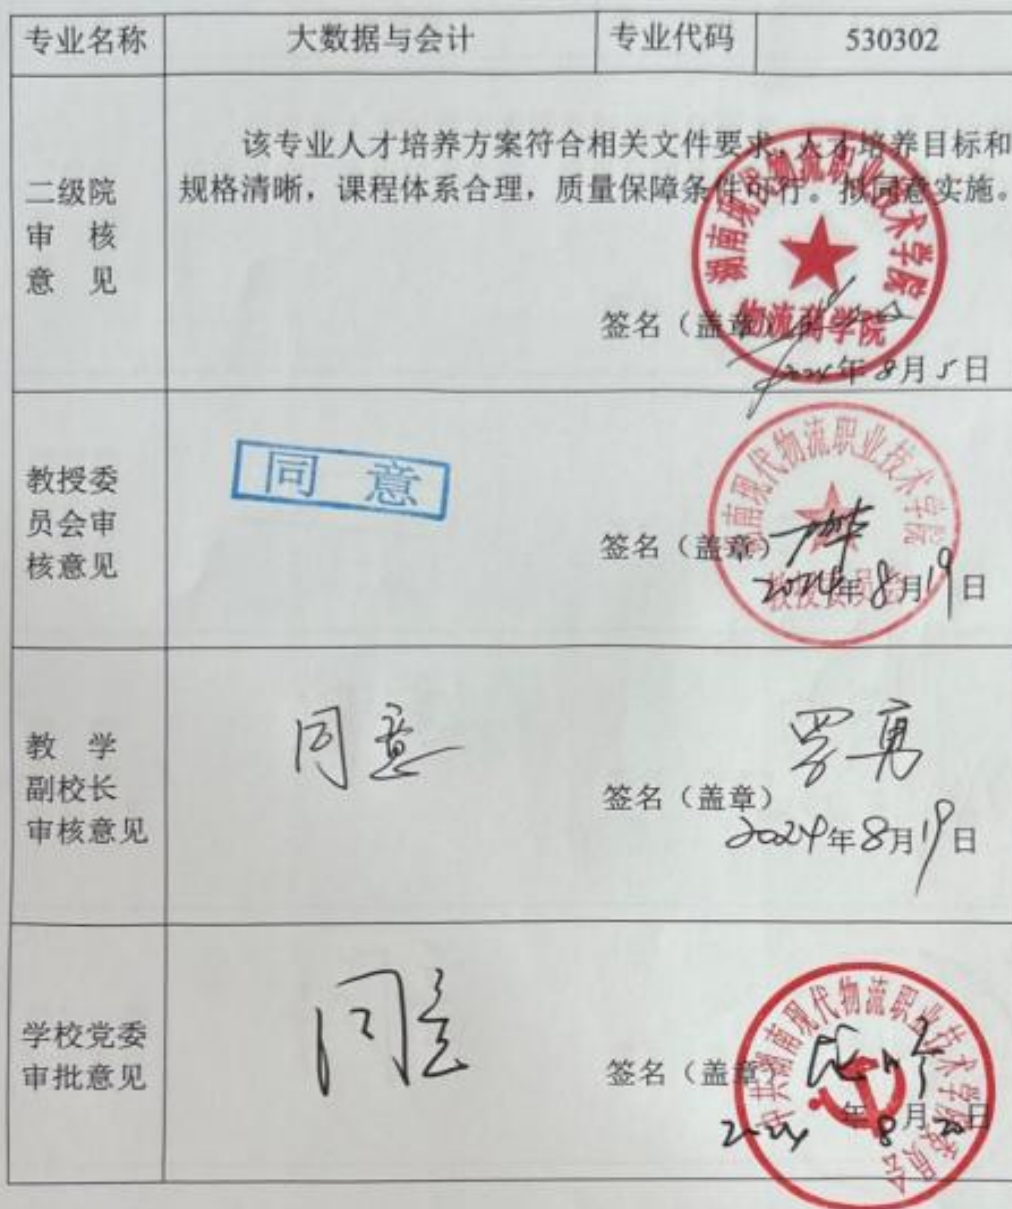 专业名称 大数据与会计 专业代码 530302
二级院
审 核
意 见
该专业人才培养方案符合相关文件要求，人才培养目标和
规格清晰，课程体系合理，质量保障条件可行。拟同意实施。
湖南现代物流职业技术学院
物流商学院
签名（盖章）
2024年8月5日
教授委
员会审
核意见
同 意
湖南现代物流职业技术学院
教授委员会
签名（盖章）
2024年8月19日
教 学
副校长
审核意见
同意
签名（盖章）
罗勇
2024年8月19日
学校党委
审批意见
同意
中共湖南现代物流职业技术学院委员会
签名（盖章）
2024年8月20日